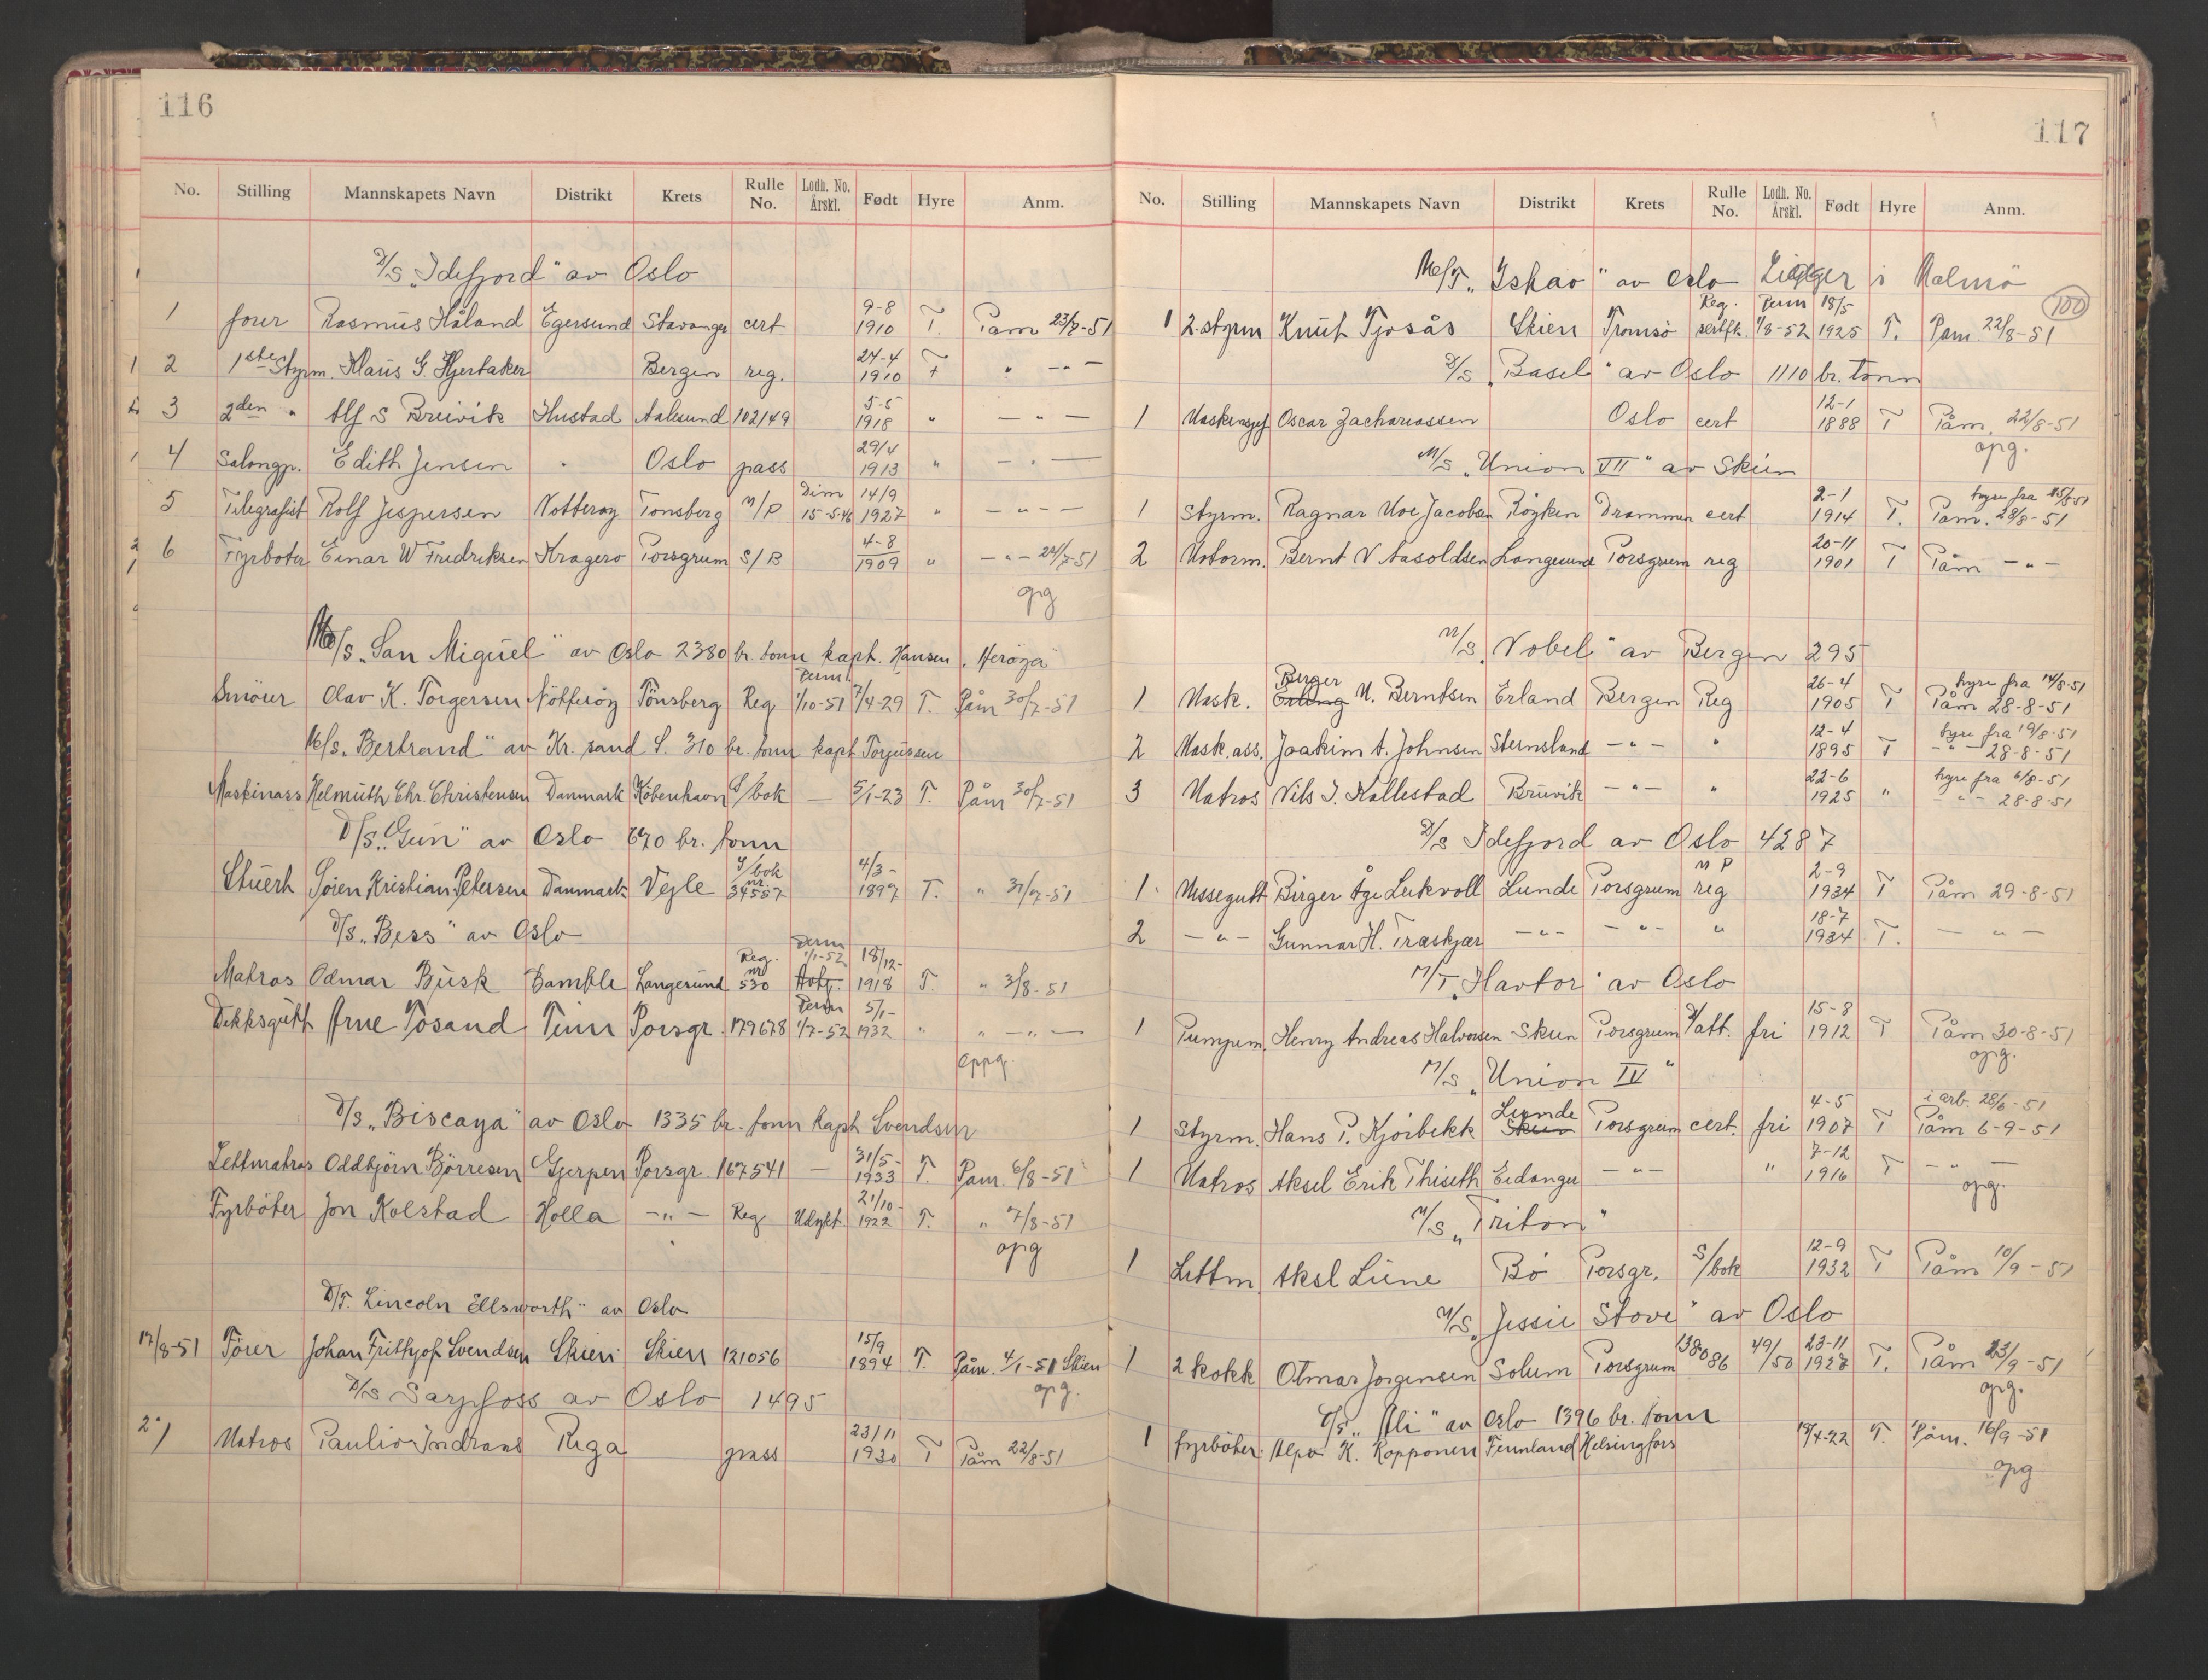 116
No. Stilling Mannskapets Navn Distrikt Krets Rulle No. Lodh. No. Årskl. Født Hyre Anm.
D/S „Idefjord" av Oslo
1 fører Rasmus Håland Egersund Stavanger cert 9-8 1910 T. Påm 23/7-51
2 1ste Styrm. Klaus G. Hjertaker Bergen reg. 24-4 1910 T " — " —
3 2den " Alf S Breivik Hustad Aalesund 102149 5-5 1918 " — " —
4 Salongp. Edith Jensen " Oslo pass 29/4 1913 " — " —
5 Telegrafist Rolf Jespersen Nøtterøy Tønsberg M/P Dim 15-5-46 14/9 1927 " — " —
6 Fyrbøter Einar W Fredriksen Kragerø Porsgrunn S/B 4-8 1909 " — " — 24/7-51
opg
M/S „San Miguel" av Oslo 2380 br. tonn kapt. Hansen, Herøya
Smører Olav K. Torgersen Nøtterøy Tønsberg Reg Perm. 1/10-51 7/4-29 T. Påm 30/7-51
M/S „Bertrand" av Kr. sand S. 310 br. tonn kapt Torjussen
Maskinass Helmuth Chr. Christensen Danmark København S/bok — 5/1-23 T. Påm 30/7-51
D/S „Gun" av Oslo 690 br. tonn
Stuert Søren Kristian Petersen Danmark Vejle S/bok nr. 34557 4/3- 1897 T. " 31/7-51
D/S „Bess" av Oslo
Matros Odmar Busk Bamble Langesund Reg. nr 530 Perm 1/1-52 18/12- 1918 T. " 3/8-51
Dekksgutt Arne Tosand Tinn Porsgr. 179678 Perm 1/7-52 5/1- 1932 " " — " —
oppg.
D/S „Biscaya" av Oslo 1335 br. tonn kapt Svendsen
Lettmatros Oddbjørn Bjørresen Gjerpen Porsgr. 167541 — 31/5- 1933 T. Påm. 6/8-51
Fyrbøter Jon Kolstad Holla — " — Reg Udykt 21/10- 1922 T. " 7/8-51
opg
D/T. Lincoln Ellsworth" av Oslo
17/8-51 Fører Johan Frithjof Svendsen Skien Skien 121056 15/9 1894 T. Påm. 4/1-51 Skien
opg.
D/S Sarpfoss av Oslo 1495
1 Matros Paulis Indrans Riga pass 23/11 1930 T Påm 22/8-51
117
No. Stilling Mannskapets Navn Distrikt Krets Rulle No. Lodh. No. Årskl. Født Hyre Anm.
M/T. „Iskav" av Oslo Ligger i Malmø
100
1 2. styrm Knut Tjosås Skien Tromsø Reg. sertfk. Perm 1/8-52 18/5 1925 T. Påm. 22/8-51
D/S „Basel" av Oslo 1110 br. tonn
1 Maskinsjef Oscar Zachariassen Oslo cert 12-1 1888 T Påm. 22/8-51
opg.
M/S „Union VII" av Skien
1 Styrm. Ragnar Moe Jacobsen Røyken Drammen cert 2-1 1914 T. hyre fra 15/8-51 Påm. 28/8-51
2 Motorm. Bernt N Aasoldsen Langesund Porsgrunn reg 20-11 1901 T Påm — " —
M/S „Nobel" av Bergen 295
1 Mask. Erling Berger M. Berntsen Erland Bergen Reg 26-4 1905 T hyre fra 14/8-51 Påm 28-8-51
2 Mask. ass. Joakim A. Johnsen Sternsland — " — " 12-4 1895 T hyre fra 19/8-51 — " — 28-8-51
3 Matros Nils J. Kallestad Bruvik — " — " 22-6 1925 " hyre fra 6/8-51 — " — 28-8-51
D/S Idefjord av Oslo 4287
1 Messegutt Birger Åge Leikvoll Lunde Porsgrunn M P reg 2-9 1934 T Påm 29-8-51
2 — " — Gunnar H. Træskjær — " — — " — " 18-7 1934 T. — " —
M/T „Havtor" av Oslo
1 Pumpem. Henry Andreas Halvorsen Skien Porsgrunn U/att. fri 15-8 1912 T Påm 30-8-51
opg.
M/S „Union IV"
1 Styrm. Hans P. Kjørbekk Skien Lunde Porsgrunn cert. fri 4-5 1907 T i arb. 28/6-51 Påm 6-9-51
1 Matros Aksel Erik Thiseth Eidanger — " — " 7-12 1916 T — " —
opg.
M/S „Triton"
1 Lettm. Aksl Lune Bø Porsgr. S/bok 12-9 1932 T Påm 10/9-51
M/S „Jessie Stove" av Oslo
1 2 kokk Otmar Jørgensen Solum Porsgrunn 138086 49/50 23-11 1928 T. Påm 13/9-51
opg.
D/S „Ali" av Oslo 1396 br. tonn
1 fyrbøter Alpo K. Kopponen Finnland Helsingfors 19/4-22 T. Påm. 16/9-51
opg